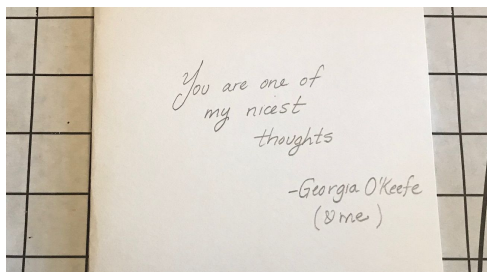 You are one of
my nicest
thoughts
-Georgia O'Keefe
(& me)